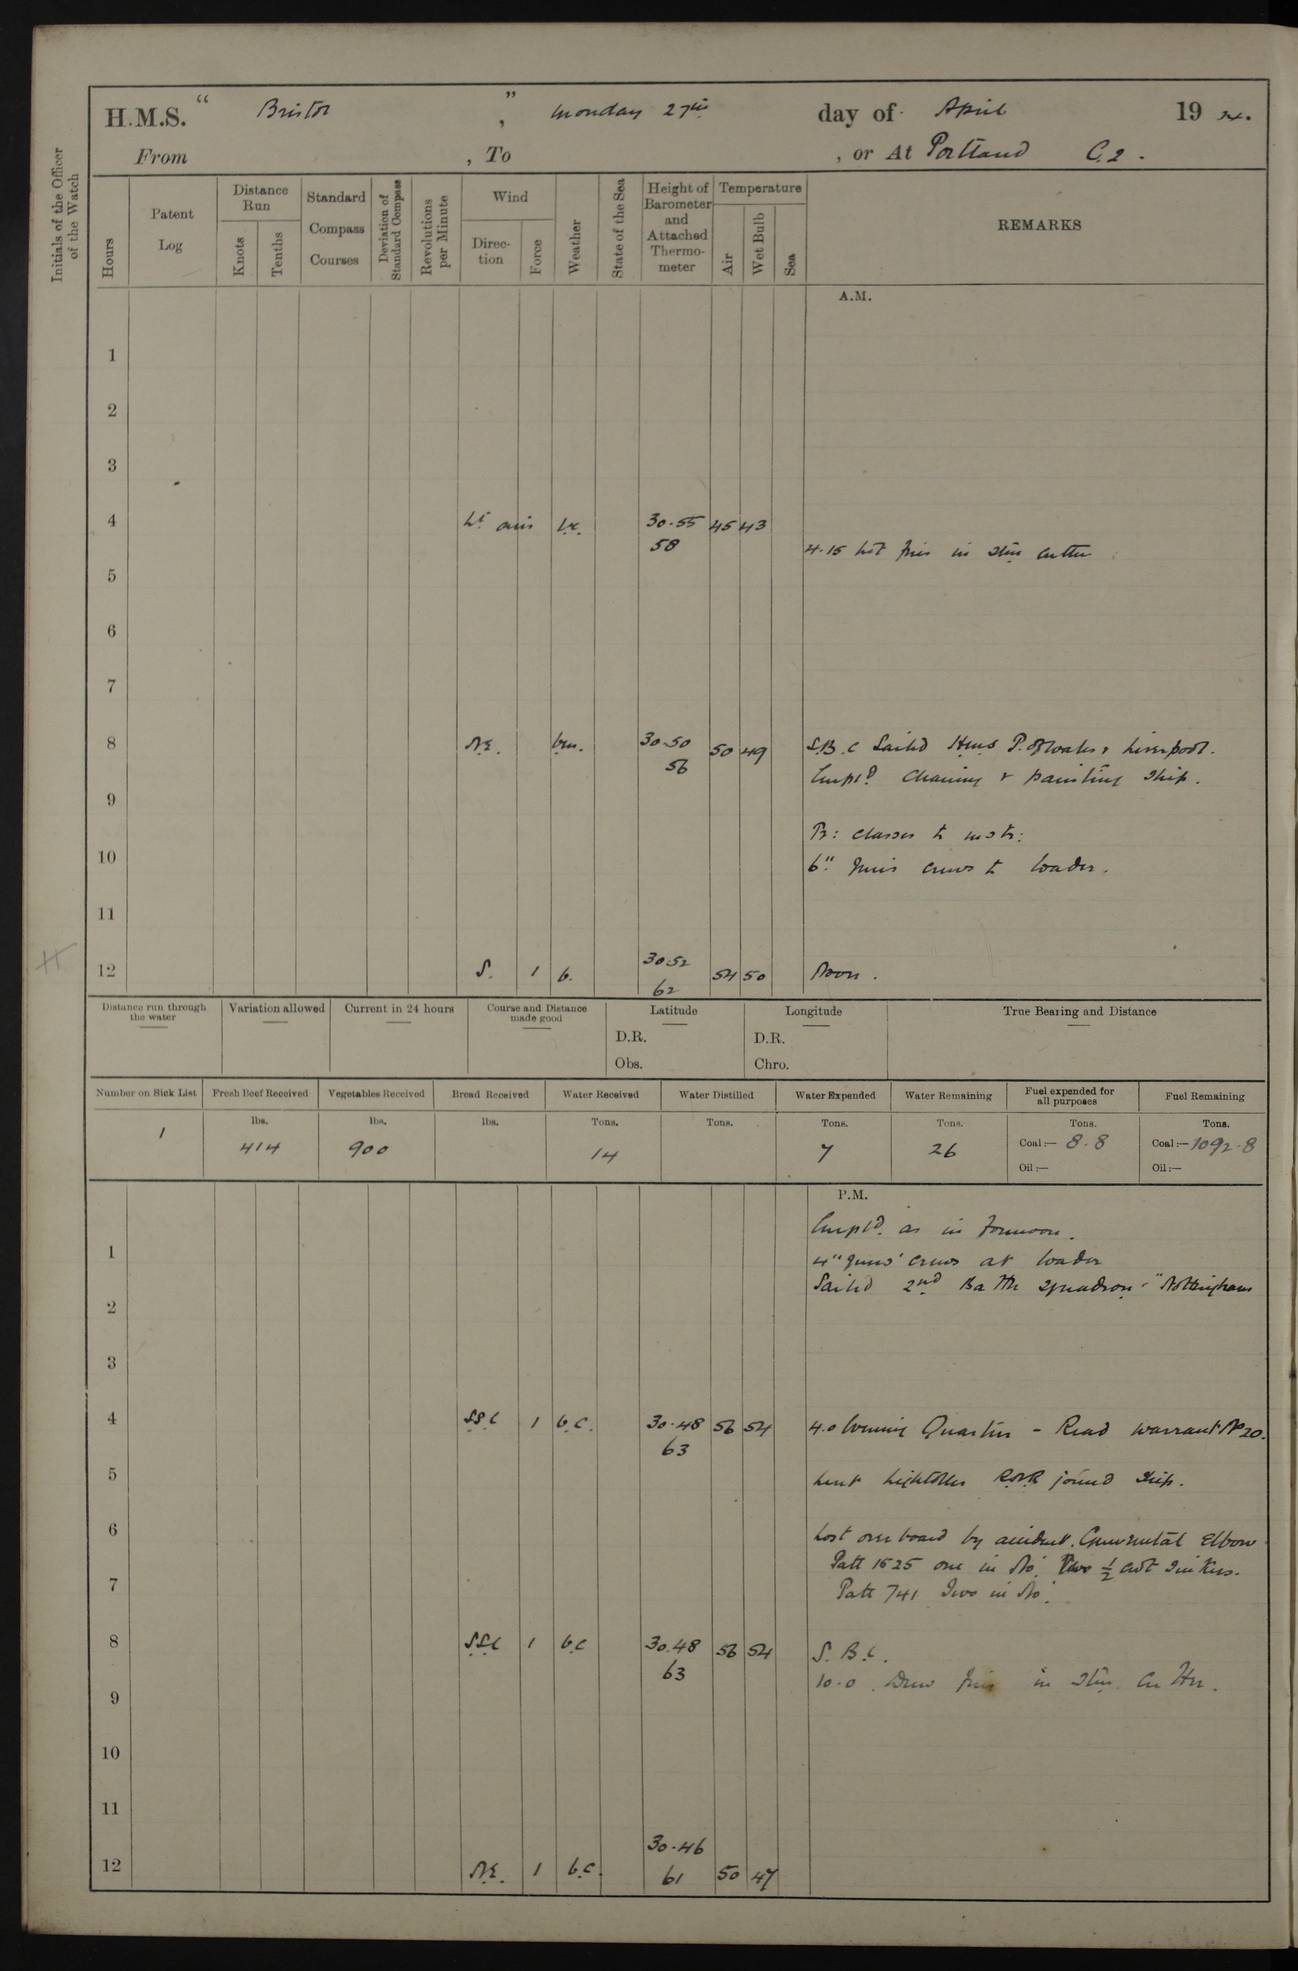 H.M.S. “ Bristol ” , Monday 27th day of April 19 14.
From , To , or At Portland C.2.
Initials of the Officer of the Watch
Hours
Patent Log
Distance Run
Knots
Tenths
Standard Compass Courses
Deviation of Standard Compass
Revolutions per Minute
Wind
Direction
Force
Weather
State of the Sea
Height of Barometer and Attached Thermometer
Temperature
Air
Wet Bulb
Sea
REMARKS
A.M.
1
2
3
4 Lt airs b.c. 30.55 45 43
58
4.15 Lit fires in Stm Cutter
5
6
7
8 N.E. b.m. 30.50 50 49 S.B.C Sailed H.M.S P. of Wales & Liverpool.
56
Empld Cleaning & painting Ship.
9
Br: classes to instr:
10
6" guns crews to loader.
11
12 S. 1 b. 30.52 54 50 Noon.
62
Distance run through the water
Variation allowed
Current in 24 hours
Course and Distance made good
Latitude
D.R.
Obs.
Longitude
D.R.
Chro.
True Bearing and Distance
Number on Sick List Fresh Beef Received Vegetables Received Bread Received Water Received Water Distilled Water Expended Water Remaining Fuel expended for all purposes Fuel Remaining
lbs. lbs. lbs. Tons. Tons. Tons. Tons. Tons. Tons.
1 414 900 14 7 26 Coal:— 8.8 Coal:— 1092.8
Oil:— Oil:—
P.M.
Empld. as in Forenoon.
1 4" guns' crews at loader
Sailed 2nd Battle Squadron - "Nottingham
2
3
4 S.S.E 1 b.c. 30.48 56 54 4.0 Evening Quarters - Read Warrant No 20.
63
5 Lieut Lightoller R.N.R joined Ship.
6 Lost overboard by accident. Gunmetal Elbow
Patt 1525 one in No. Two ½ cwt Sinkers.
7 Patt 741 Two in No.
8 S.S.E 1 b.c 30.48 56 54 S.B.C.
63
10.0 Drew fires in Stm. Cutter.
9
10
11
12 N.E. 1 b.c. 30.46 50 47
61